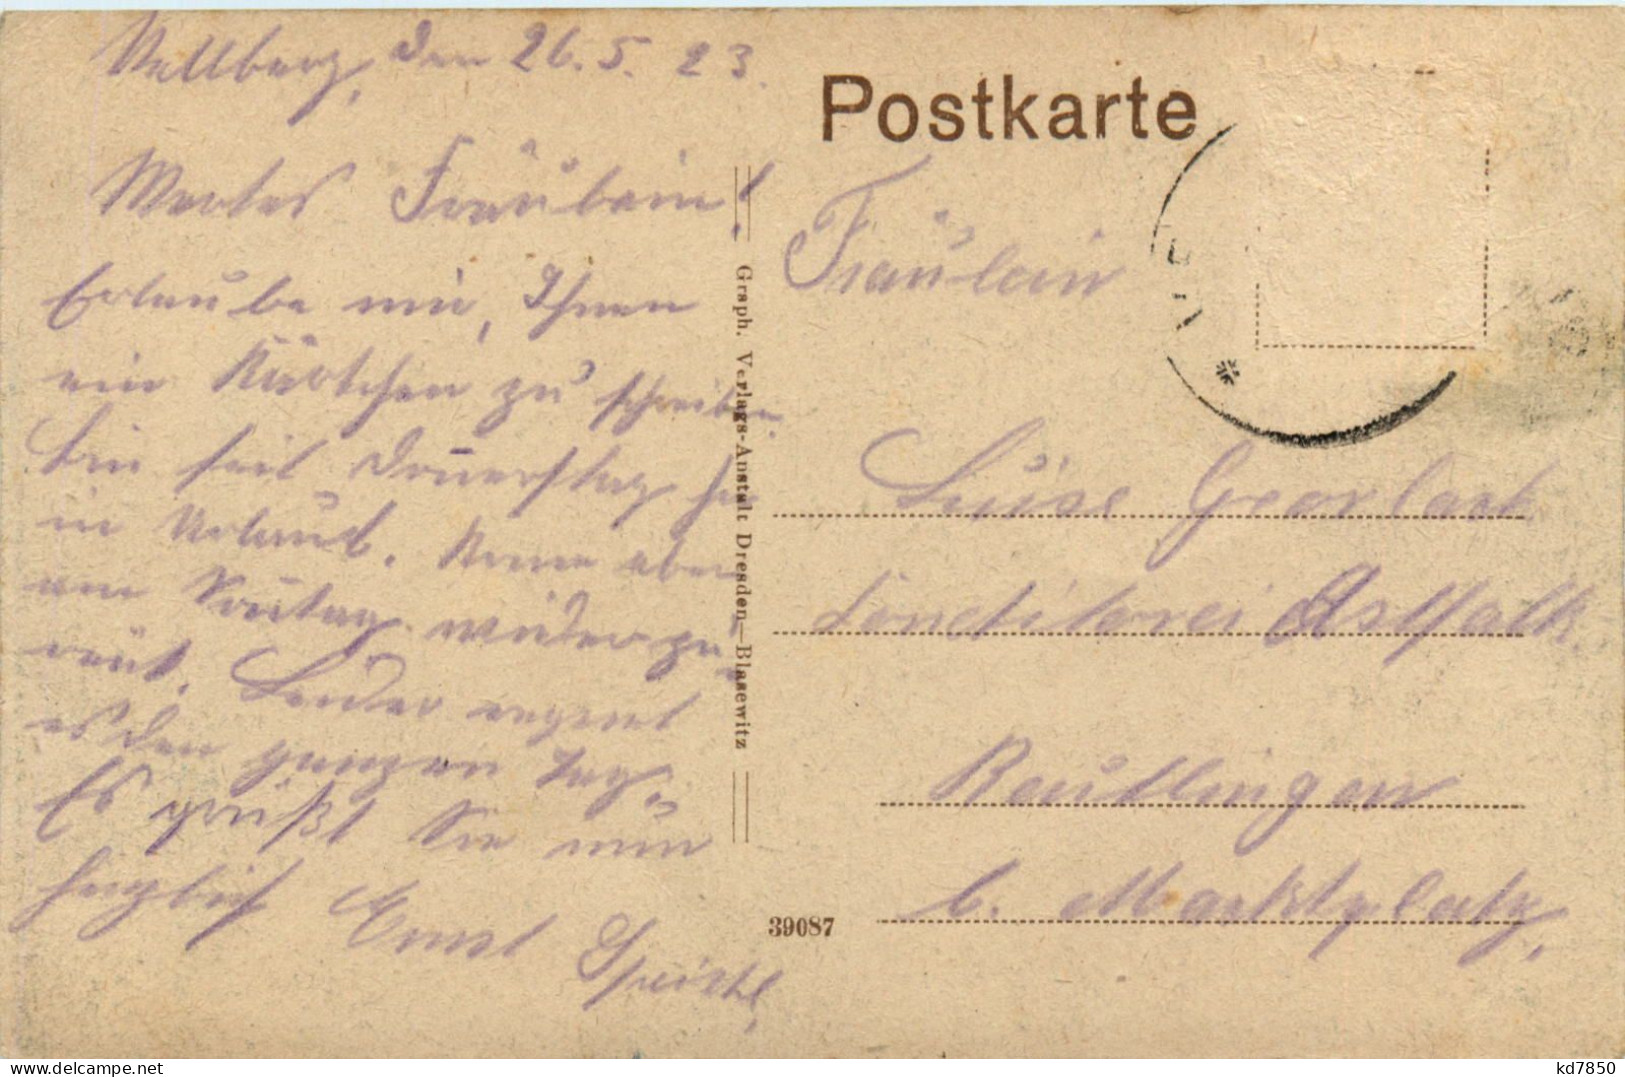 Vellberg, den 26.5.23.
Wertes Fräulein!
Erlaube mir, Ihnen
ein Kärtchen zu schreiben.
Bin seit Donnerstag hier
in Urlaub. Komme aber
am Sonntag wieder zu-
rück. Leider regnet
es den ganzen Tag.
Es grüßt Sie nun
herzlich Ernst
Postkarte
Fräulein
Luise
Conditorei
Reutlingen
b. Marktplatz.
Graph. Verlags-Anstalt Dresden—Blasewitz
39087
kd7850